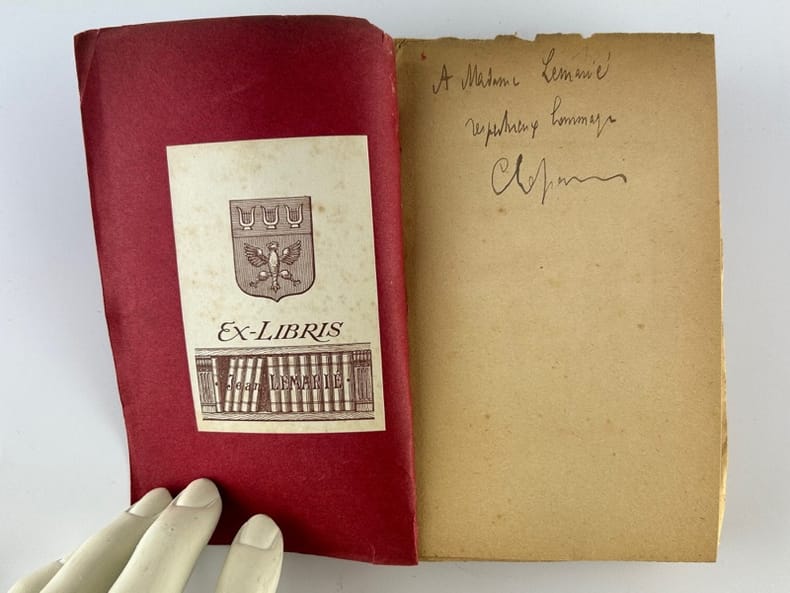 EX-LIBRIS
Jean LEMARIÉ
A Madame Lemarié
respectueux hommage